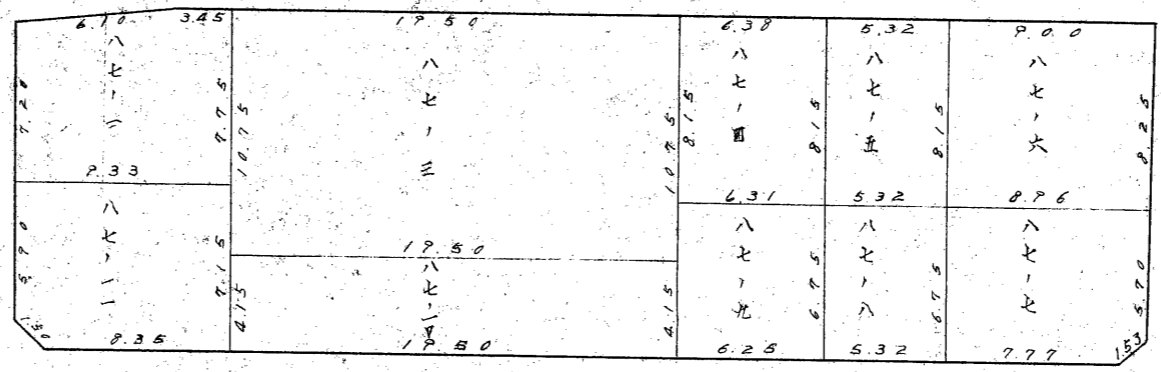 6.10
3.45
八七-二
7.20
7.75
9.33
八七-一一
5.90
7.15
1.50
8.35
19.50
八七-三
10.75
10.75
19.50
八七-一
4.15
4.15
19.50
6.38
八七-四
8.15
8.15
6.31
八七-九
6.75
6.25
5.32
八七-五
8.15
5.32
八七-八
6.75
5.32
9.00
八七-六
8.25
8.96
八七-七
5.70
7.77
1.53